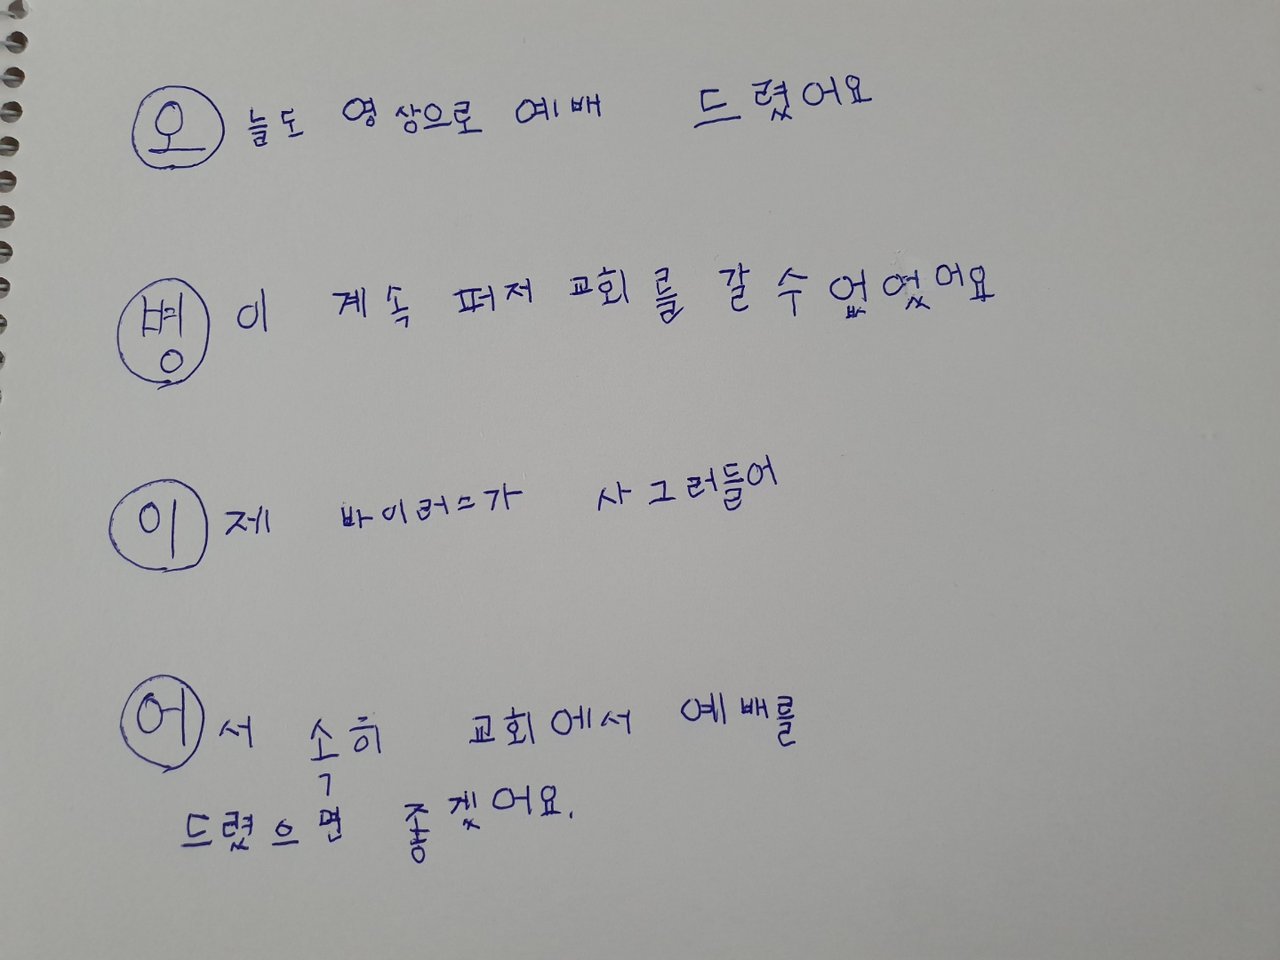 오늘도 영상으로 예배 드렸어요
병이 계속 퍼저 교회를 갈 수 없었어요
이제 바이러스가 사그러들어
어서 속히 교회에서 예배를
드렸으면 좋겠어요.